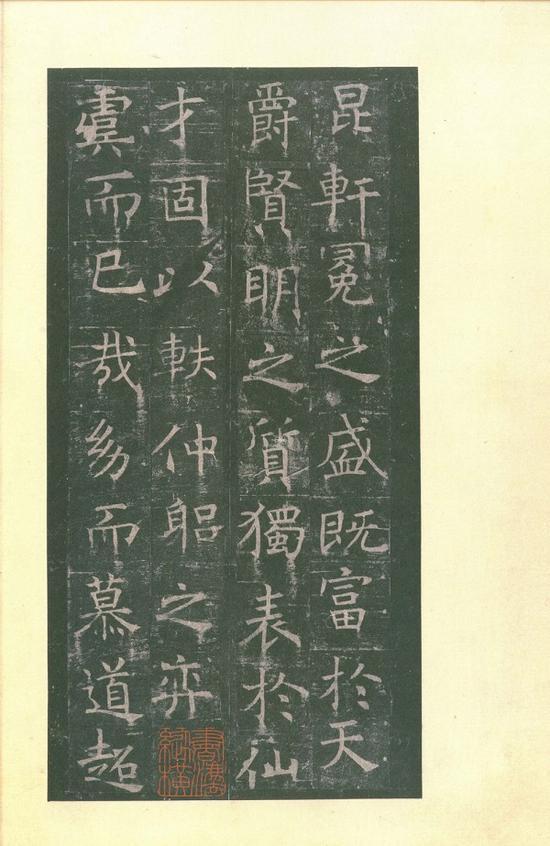 昆軒冕之盛既富於天
爵賢明之質獨表於仙
才固以軼仲躬之弈
虞而已哉幼而慕道超